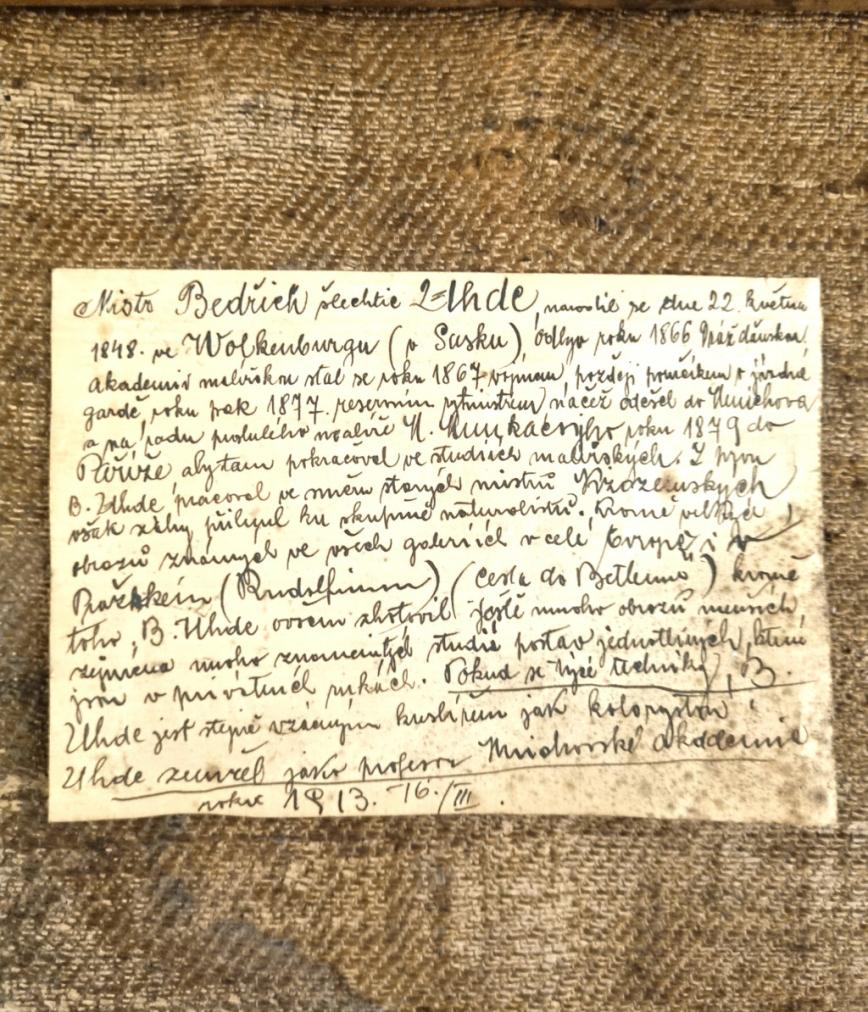 Mistr Bedřich šlechtic z Uhde, narodil se dne 22. května
1848. ve Wolkenburgu (v Sasku), odbyv roku 1866 Drážďanskou
akademii malířskou stal se roku 1867 vojínem, později poručíkem v jízdní
gardě, roku pak 1877. reservním rytmistrem, načež odešel do Mnichova
a na radu proslulého malíře M. Munkacsyho roku 1879 do
Paříže aby tam pokračoval ve studiích malířských. Z prvu
B. Uhde, pracoval ve směru starých mistrů Nizozemských
však záhy přilnul ku skupině naturalistů. Kromě velkých
obrazů známých ve všech galeriích v celé Evropě, i v
Pražském (Rudolfinum) (cesta do Betlemů) kromě
toho, B. Uhde ovšem zhotovil ještě mnoho obrazů menších,
zejména mnoho znamenitých studií postav jednotlivých, které
jsou v privátních rukách. Pokud se týče techniky, B.
Uhde jest stejně vzácným kreslířem jak koloristou
Uhde zemřel jako profesor Mnichovské akademie
roku 1913. 16./III.